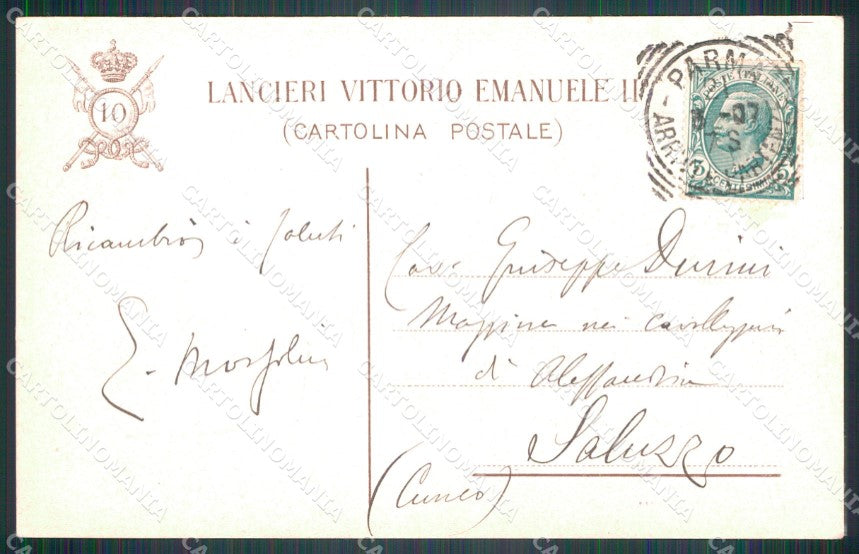 10
LANCIERI VITTORIO EMANUELE II
(CARTOLINA POSTALE)
PARMA
POSTE ITALIANE
-07
5 CENTESIMI 5
Ricambio i saluti
E.
Cav. Giuseppe Durini
Maggiore nei Cavalleggeri
di Alessandria
Saluzzo
(Cuneo)
CARTOLINOMANIA